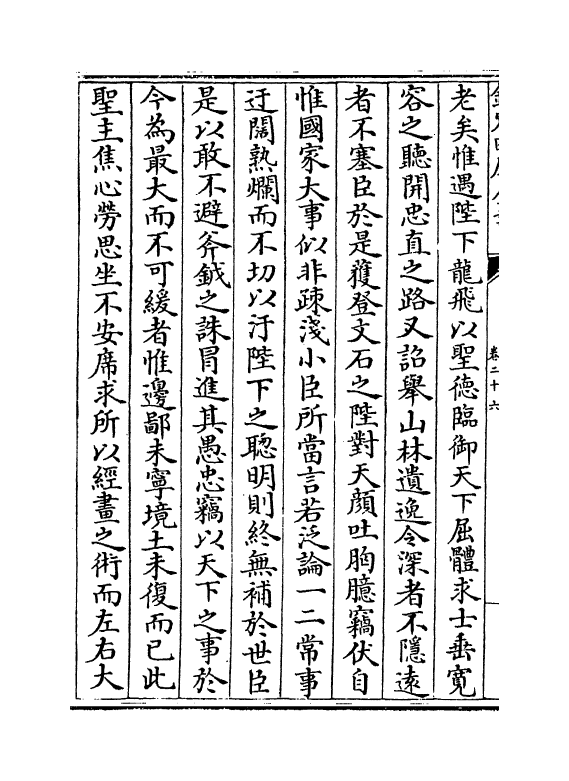 老矣惟遇陛下龍飛以聖德臨御天下屈體求士垂寛
容之聽開忠直之路又詔舉山林遺逸令深者不隱逺
者不塞臣於是獲登文石之陛對天顔吐胸臆竊伏自
惟國家大事似非疎淺小臣所當言若泛論一二常事
迂闊熟爛而不切以汙陛下之聰明則終無補於世臣
是以敢不避斧鉞之誅冒進其愚忠竊以天下之事於
今為最大而不可緩者惟邊鄙未寧境土未復而已此
聖主焦心勞思坐不安席求所以經畫之術而左右大
卷二十六